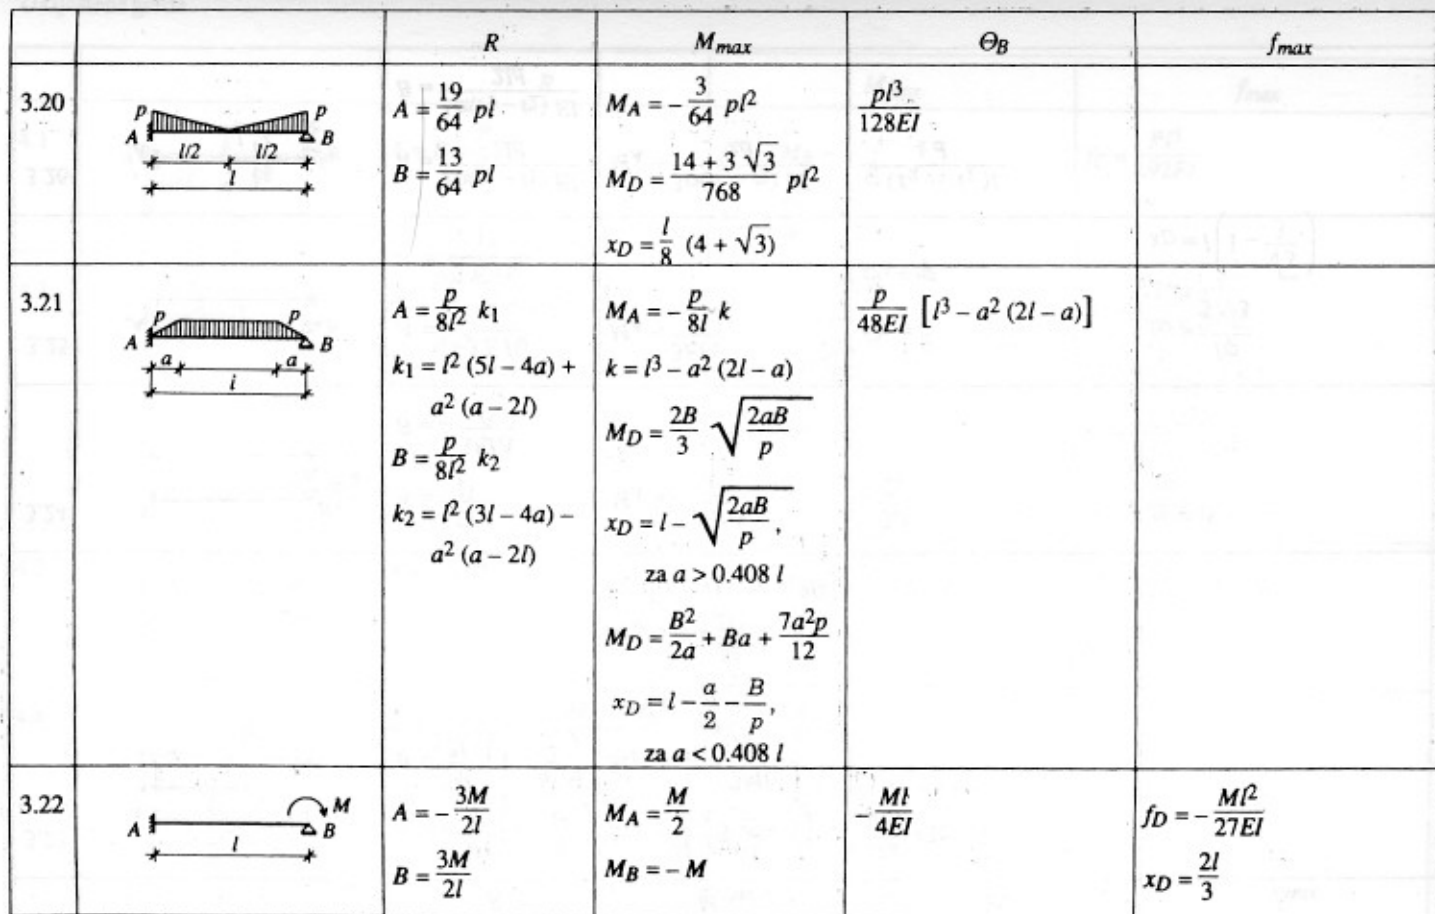 R M_max Θ_B f_max
3.20
p p
A B
l/2 l/2
l
A = 19/64 pl
B = 13/64 pl
M_A = − 3/64 pl²
M_D = (14 + 3√3)/768 pl²
x_D = l/8 (4 + √3)
pl³/128EI
3.21
p p
A B
a a
l
A = p/8l² k₁
k₁ = l² (5l − 4a) +
a² (a − 2l)
B = p/8l² k₂
k₂ = l² (3l − 4a) −
a² (a − 2l)
M_A = − p/8l k
k = l³ − a² (2l − a)
M_D = 2B/3 √(2aB/p)
x_D = l − √(2aB/p) ,
za a > 0.408 l
M_D = B²/2a + Ba + 7a²p/12
x_D = l − a/2 − B/p,
za a < 0.408 l
p/48EI [l³ − a² (2l − a)]
3.22
M
A B
l
A = − 3M/2l
B = 3M/2l
M_A = M/2
M_B = − M
− Ml/4EI
f_D = − Ml²/27EI
x_D = 2l/3